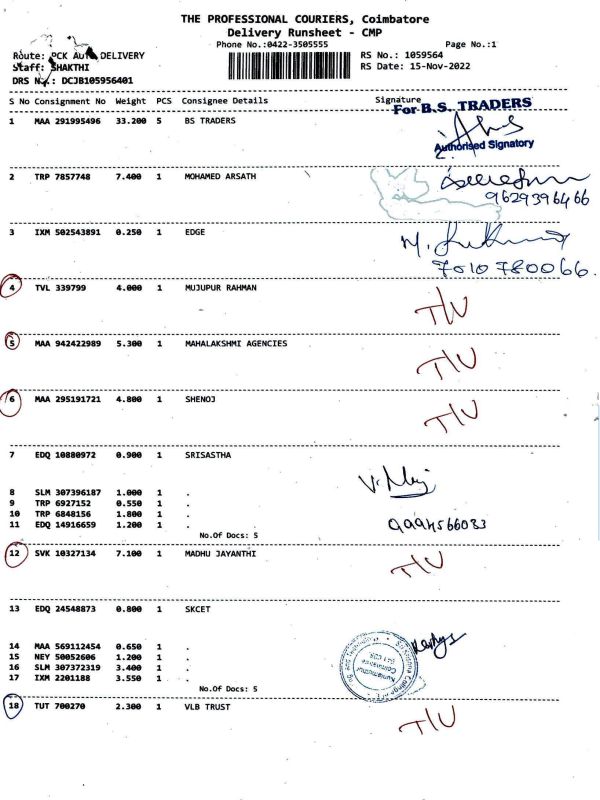 THE PROFESSIONAL COURIERS, Coimbatore
Delivery Runsheet - CMP
Phone No.:0422-3505555 Page No.:1
Route: PCK Auto DELIVERY RS No.: 1059564
Staff: SHAKTHI RS Date: 15-Nov-2022
DRS No.: DCJB105956401
S No Consignment No Weight PCS Consignee Details Signature
For B.S. TRADERS
1 MAA 291995496 33.200 5 BS TRADERS
Authorised Signatory
2 TRP 7857748 7.400 1 MOHAMED ARSATH
9629396466
3 IXM 502543891 0.250 1 EDGE
7010780066.
4 TVL 339799 4.000 1 MUJUPUR RAHMAN
T/U
5 MAA 942422989 5.300 1 MAHALAKSHMI AGENCIES
T/U
6 MAA 295191721 4.800 1 SHENOJ
T/U
7 EDQ 10880972 0.900 1 SRISASTHA
8 SLM 307396187 1.000 1 .
9 TRP 6927152 0.550 1 .
10 TRP 6848156 1.800 1 .
11 EDQ 14916659 1.200 1 .
No.Of Docs: 5
12 SVK 10327134 7.100 1 MADHU JAYANTHI
T/U
13 EDQ 24548873 0.800 1 SKCET
14 MAA 569112454 0.650 1 .
15 NEY 50052606 1.200 1 .
16 SLM 307372319 3.400 1 .
17 IXM 2201188 3.550 1 .
No.Of Docs: 5
18 TUT 700270 2.300 1 VLB TRUST
T/U